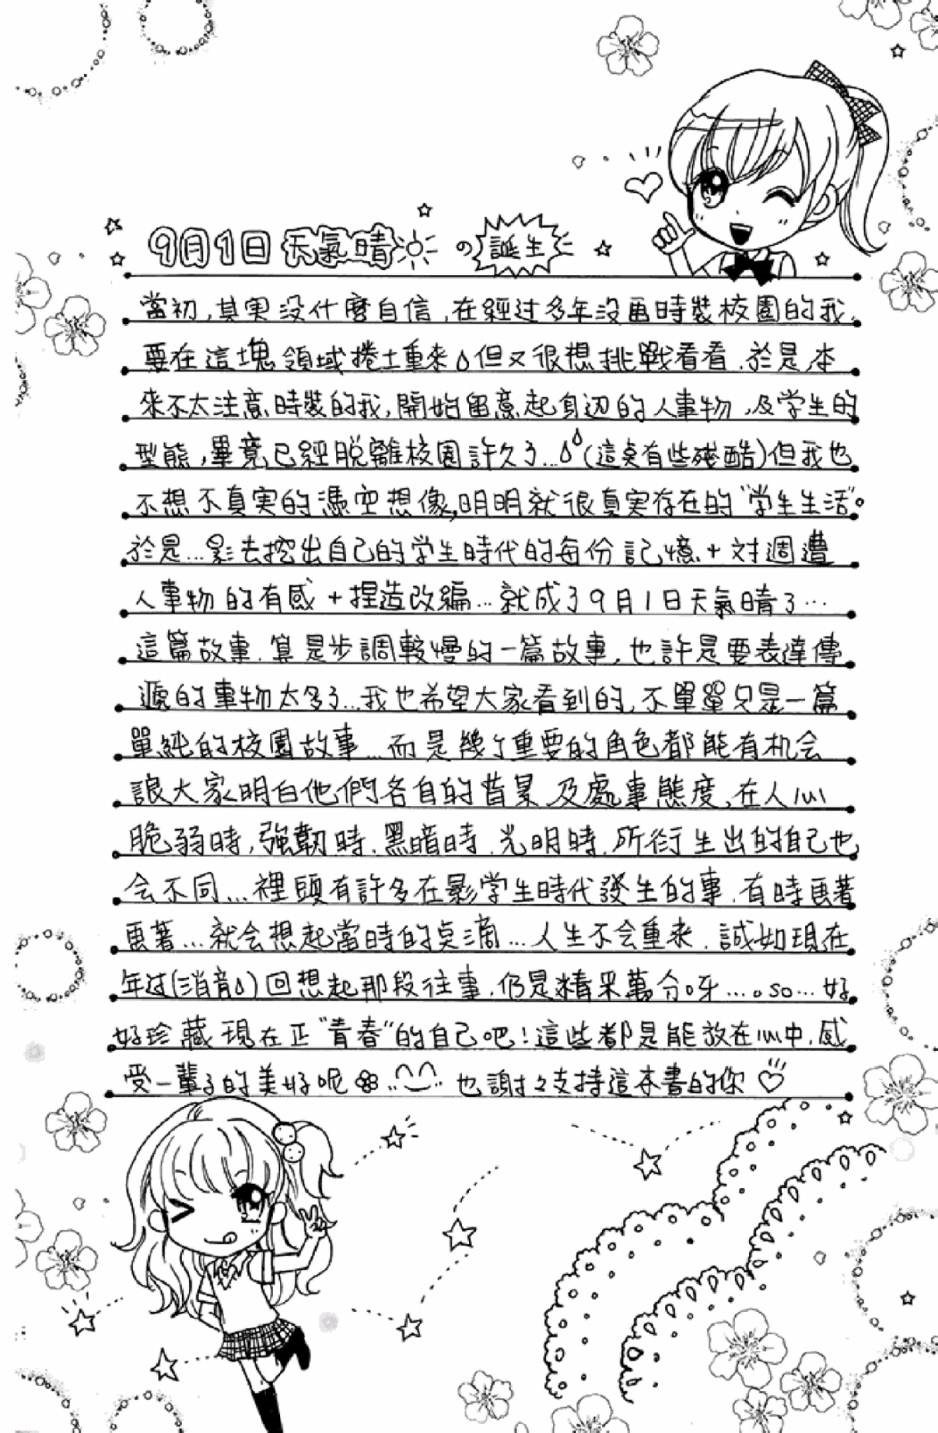 9月1日天氣晴の誕生
當初,其実没什麼自信,在經过多年没畫時裝校園的我,
要在這塊領域捲土重來,但又很想挑戰看看.於是,本
來不太注意時裝的我,開始留意起身辺的人事物,及学生的
型態,畢竟已經脱離校園許久了...(這真有些殘酷)但我也
不想不真実的憑空想像,明明就很真実存在的"学生生活"。
於是...影去挖出自己的学生時代的每份記憶+対週遭
人事物的有感+捏造改編...就成了9月1日天氣晴了...
這篇故事.算是步調較慢的一篇故事,也許是要表達傳
遞的事物太多了...我也希望大家看到的,不單單只是一篇
單純的校園故事...而是幾个重要的角色都能有机会
讓大家明白他們各自的背景及處事態度,在人心
脆弱時,強韌時.黑暗時.光明時.所衍生出的自己也
会不同...裡頭有許多在影学生時代發生的事.有時畫著
畫著...就会想起當時的点滴...人生不会重来.誠如現在
年过(消音)回想起那段往事.仍是精采萬分呀....so...好
好珍藏現在正"青春"的自己吧!這些都是能放在心中.感
受一輩子的美好呢 也謝謝支持這本書的你♡